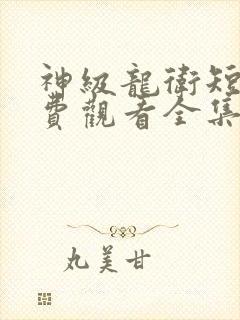 神級龍衛短
費觀看全集
丸美甘